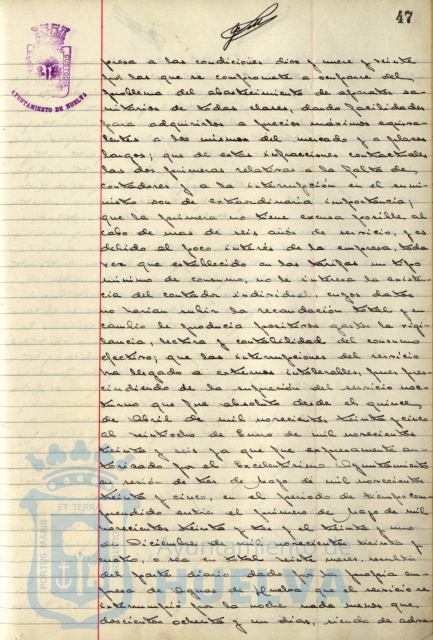 47
AYUNTAMIENTO DE HUELVA
presa a las condiciones diez y nueve y veinte
por las que se compromete a ocuparse del
problema del abastecimiento de aparatos sa-
nitarios de todas clases, dando facilidades
para adquirirlos a precios máximos equiva-
lentes a los mismos del mercado y a plazos
largos; que de estas infracciones contractuales
las dos primeras relativas a la falta de
contadores y a la interrupción en el sumi-
nistro son de extraordinaria importancia;
que la primera no tiene excusa posible, al
cabo de mas de seis años de servicio, y es
debido al poco interés de la empresa, toda
vez que establecido en las tarifas un tipo
mínimo de consumo, no le interesa la existen-
cia del contador individual, cuyos datos
no harian subir la recaudación total y en
cambio le producia positivos gastos la vigi-
lancia, lectura y contabilidad del consumo
efectivo; que las interrupciones del servicio
ha llegado a extremos intolerables, pues pres-
cindiendo de la supresión del servicio noc-
turno que fue absoluta desde el quince
de Abril de mil novecientos treinta y cinco
al veintiocho de Enero de mil novecientos
treinta y seis ya que fue expresamente au-
torizado por el Excelentísimo Ayuntamiento
en sesión de tres de Mayo de mil novecientos
treinta y cinco, en el periodo de tiempo com-
prendido entre el primero de Mayo de mil
novecientos treinta y tres y el treinta y uno
de Diciembre de mil novecientos treinta y
cuatro, o sea en total veinte meses, resulta
del parte diario dado por la propia em-
presa de Aguas de Huelva que el servicio se
interrumpió por la noche nada menos que
doscientos ochenta y un dias, siendo de adver
Ayuntamiento de
HUELVA
PORTUS MARIS ET TERRAE CUSTODIA